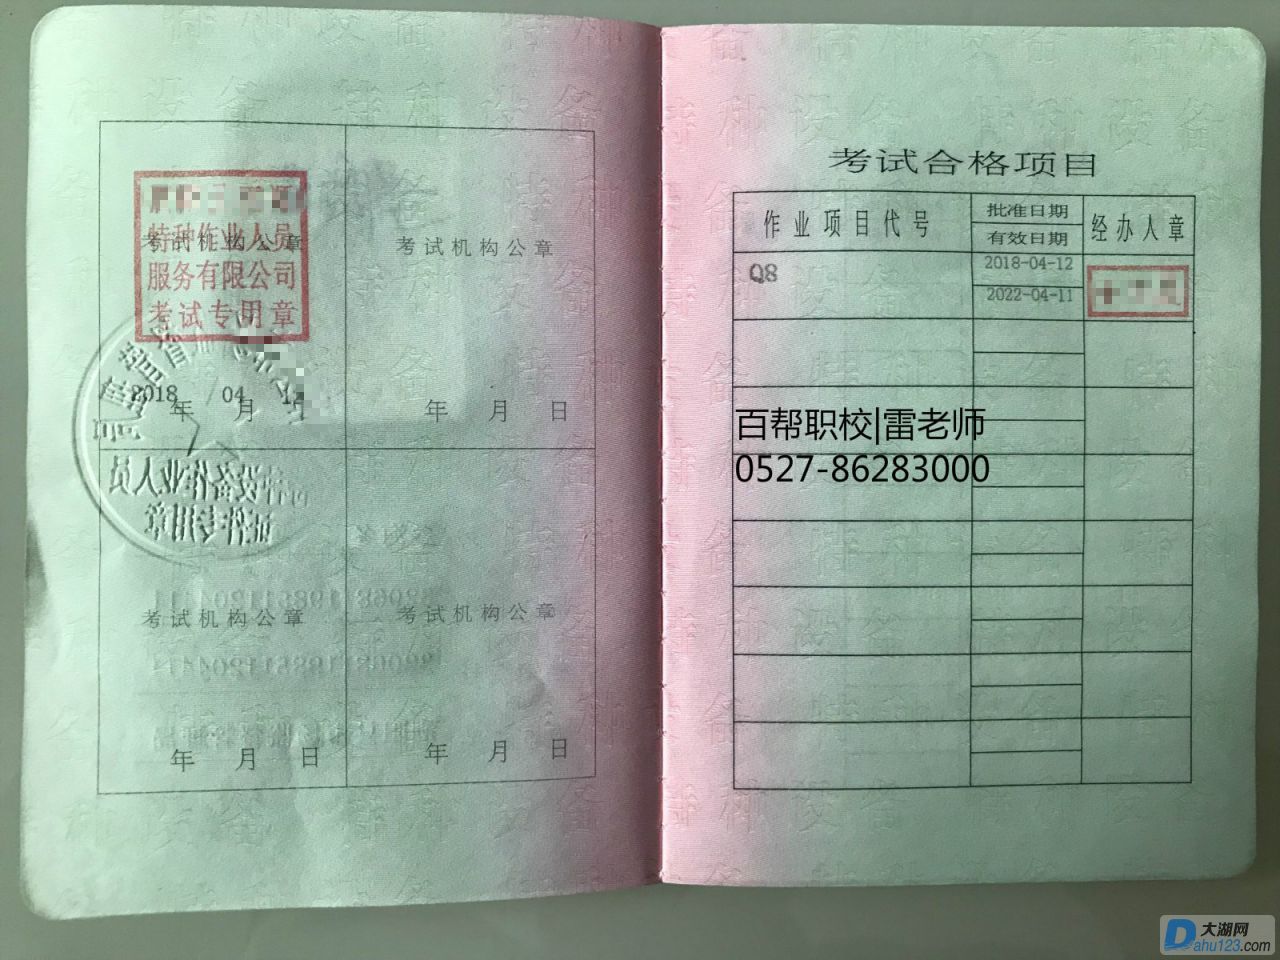 特种作业人员
考试机构公章
服务有限公司
考试专用章
2018 04
年 月
考试机构公章
年 月 日
特种设备作业人员
证件专用章
考试机构公章
年 月 日
考试机构公章
年 月 日
考试合格项目
作业项目代号
批准日期
有效日期
经办人章
Q8
2018-04-12
2022-04-11
百帮职校|雷老师
0527-86283000
大湖网
Dahu123.com